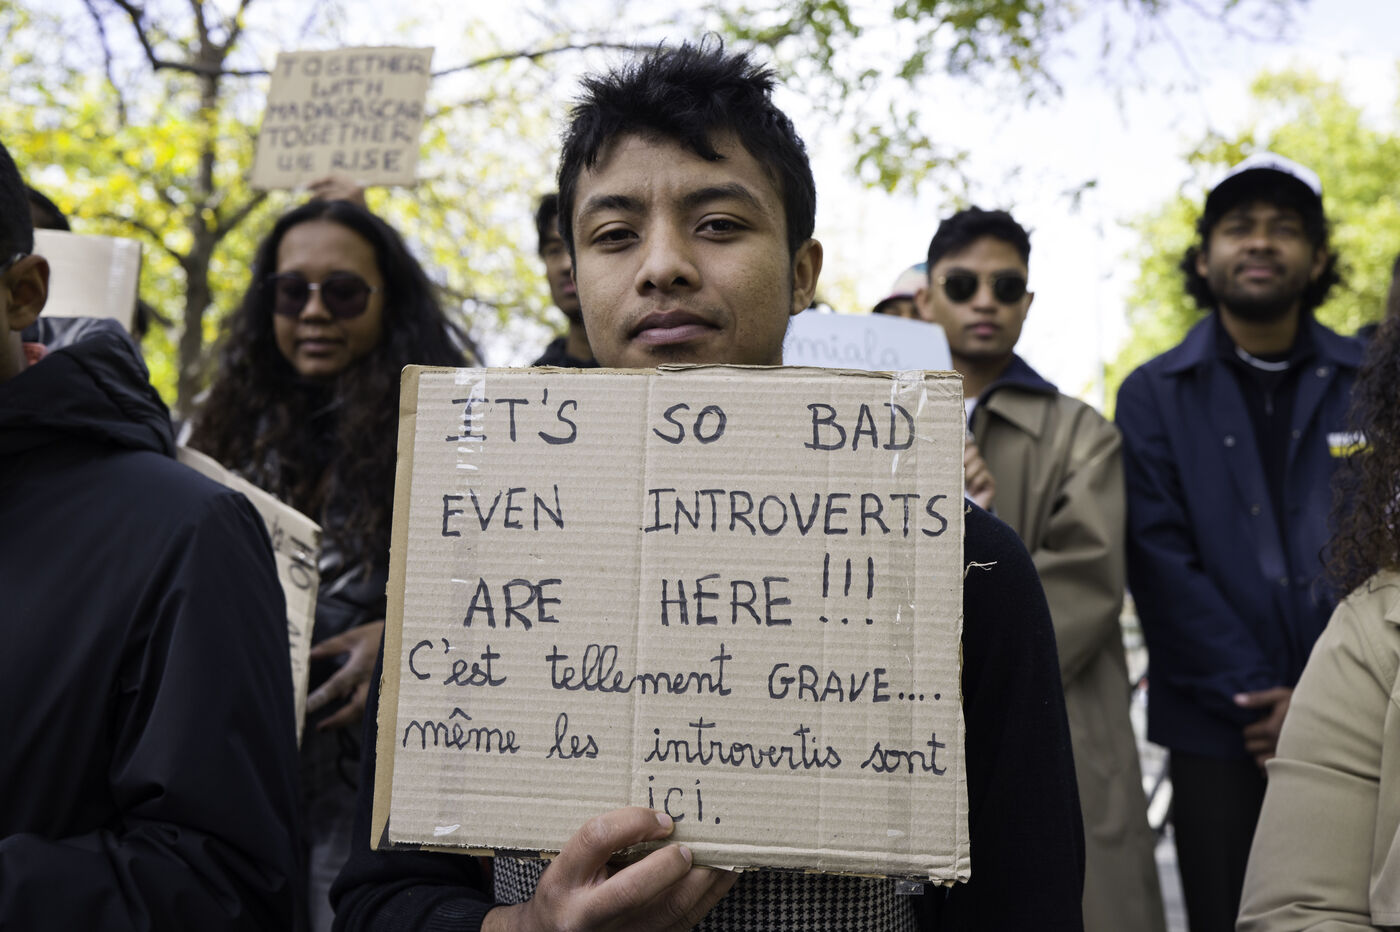 TOGETHER
WITH
MADAGASCAR
TOGETHER
WE RISE
miala
IT'S SO BAD
EVEN INTROVERTS
ARE HERE!!!
C'est tellement GRAVE....
même les introvertis sont
ici.